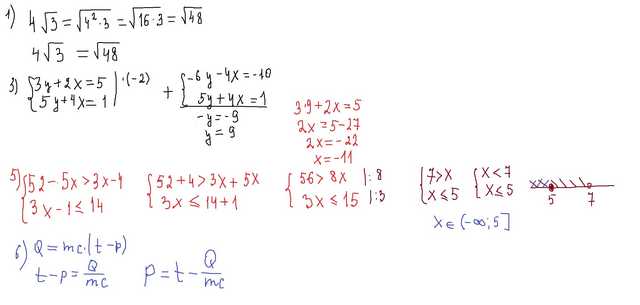 1) 4√3 = √4²·3 = √16·3 = √48
4√3 = √48
3) {3y+2x=5 |·(-2)
{5y+4x=1
+ {-6y-4x=-10
{5y+4x=1
-y=-9
y=9
3·9+2x=5
2x=5-27
2x=-22
x=-11
5) {52-5x>3x-4
{3x-1≤14
{52+4>3x+5x
{3x≤14+1
{56>8x |:8
{3x≤15 |:3
{7>x
{x≤5
{x<7
{x≤5
5 7
x∈(-∞;5]
6) Q=mc·(t-p)
t-p=Q/mc
p=t-Q/mc